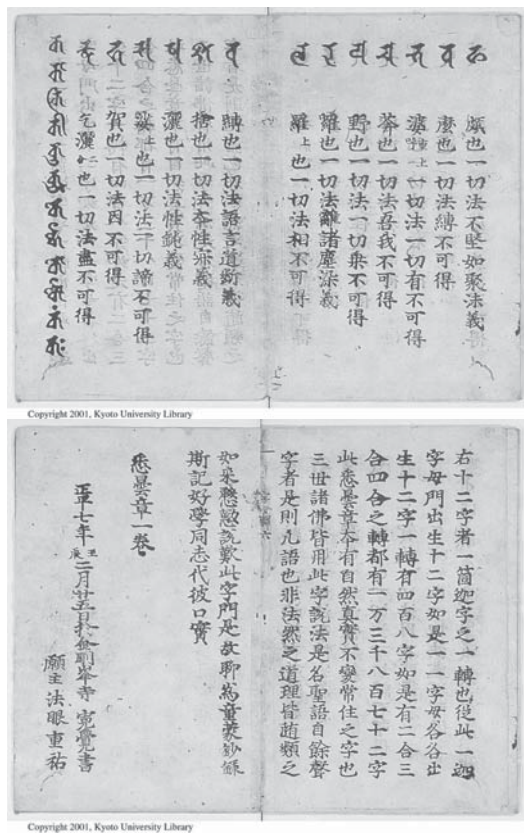 頗也一切法不堅如聚沫義
麼也一切法縛不可得
婆重上一切法一切有不可得
莽也一切法吾我不可得
野也一切法一切乘不可得
囉也一切法離諸塵染義
羅上也一切法相不可得
縛也一切法語言道斷義
捨也一切法本性寂義
灑也一切法性鈍義
娑上也一切法一切諦不可得
賀也一切法因不可得
乞灑二合也一切法盡不可得
Copyright 2001, Kyoto University Library
右十二字者一箇迦字之一轉也從此一迦
字母門出生十二字如是一一字母各各出
生十二字一轉有四百八字如是有二合三
合四合之轉都有一万三千八百七十二字
此悉曇章本有自然真實不變常住之字也
三世諸佛皆用此字說法是名聖語自餘聲
字者是則凡語也非法然之道理皆隨類之
如來慇懃說歎此字門是故聊為童蒙鈔錄
斯記好學同志代彼口實
悉曇章一卷
正平七年壬辰二月廿五日於金剛峯寺 寛覺書
願主法眼重祐
Copyright 2001, Kyoto University Library